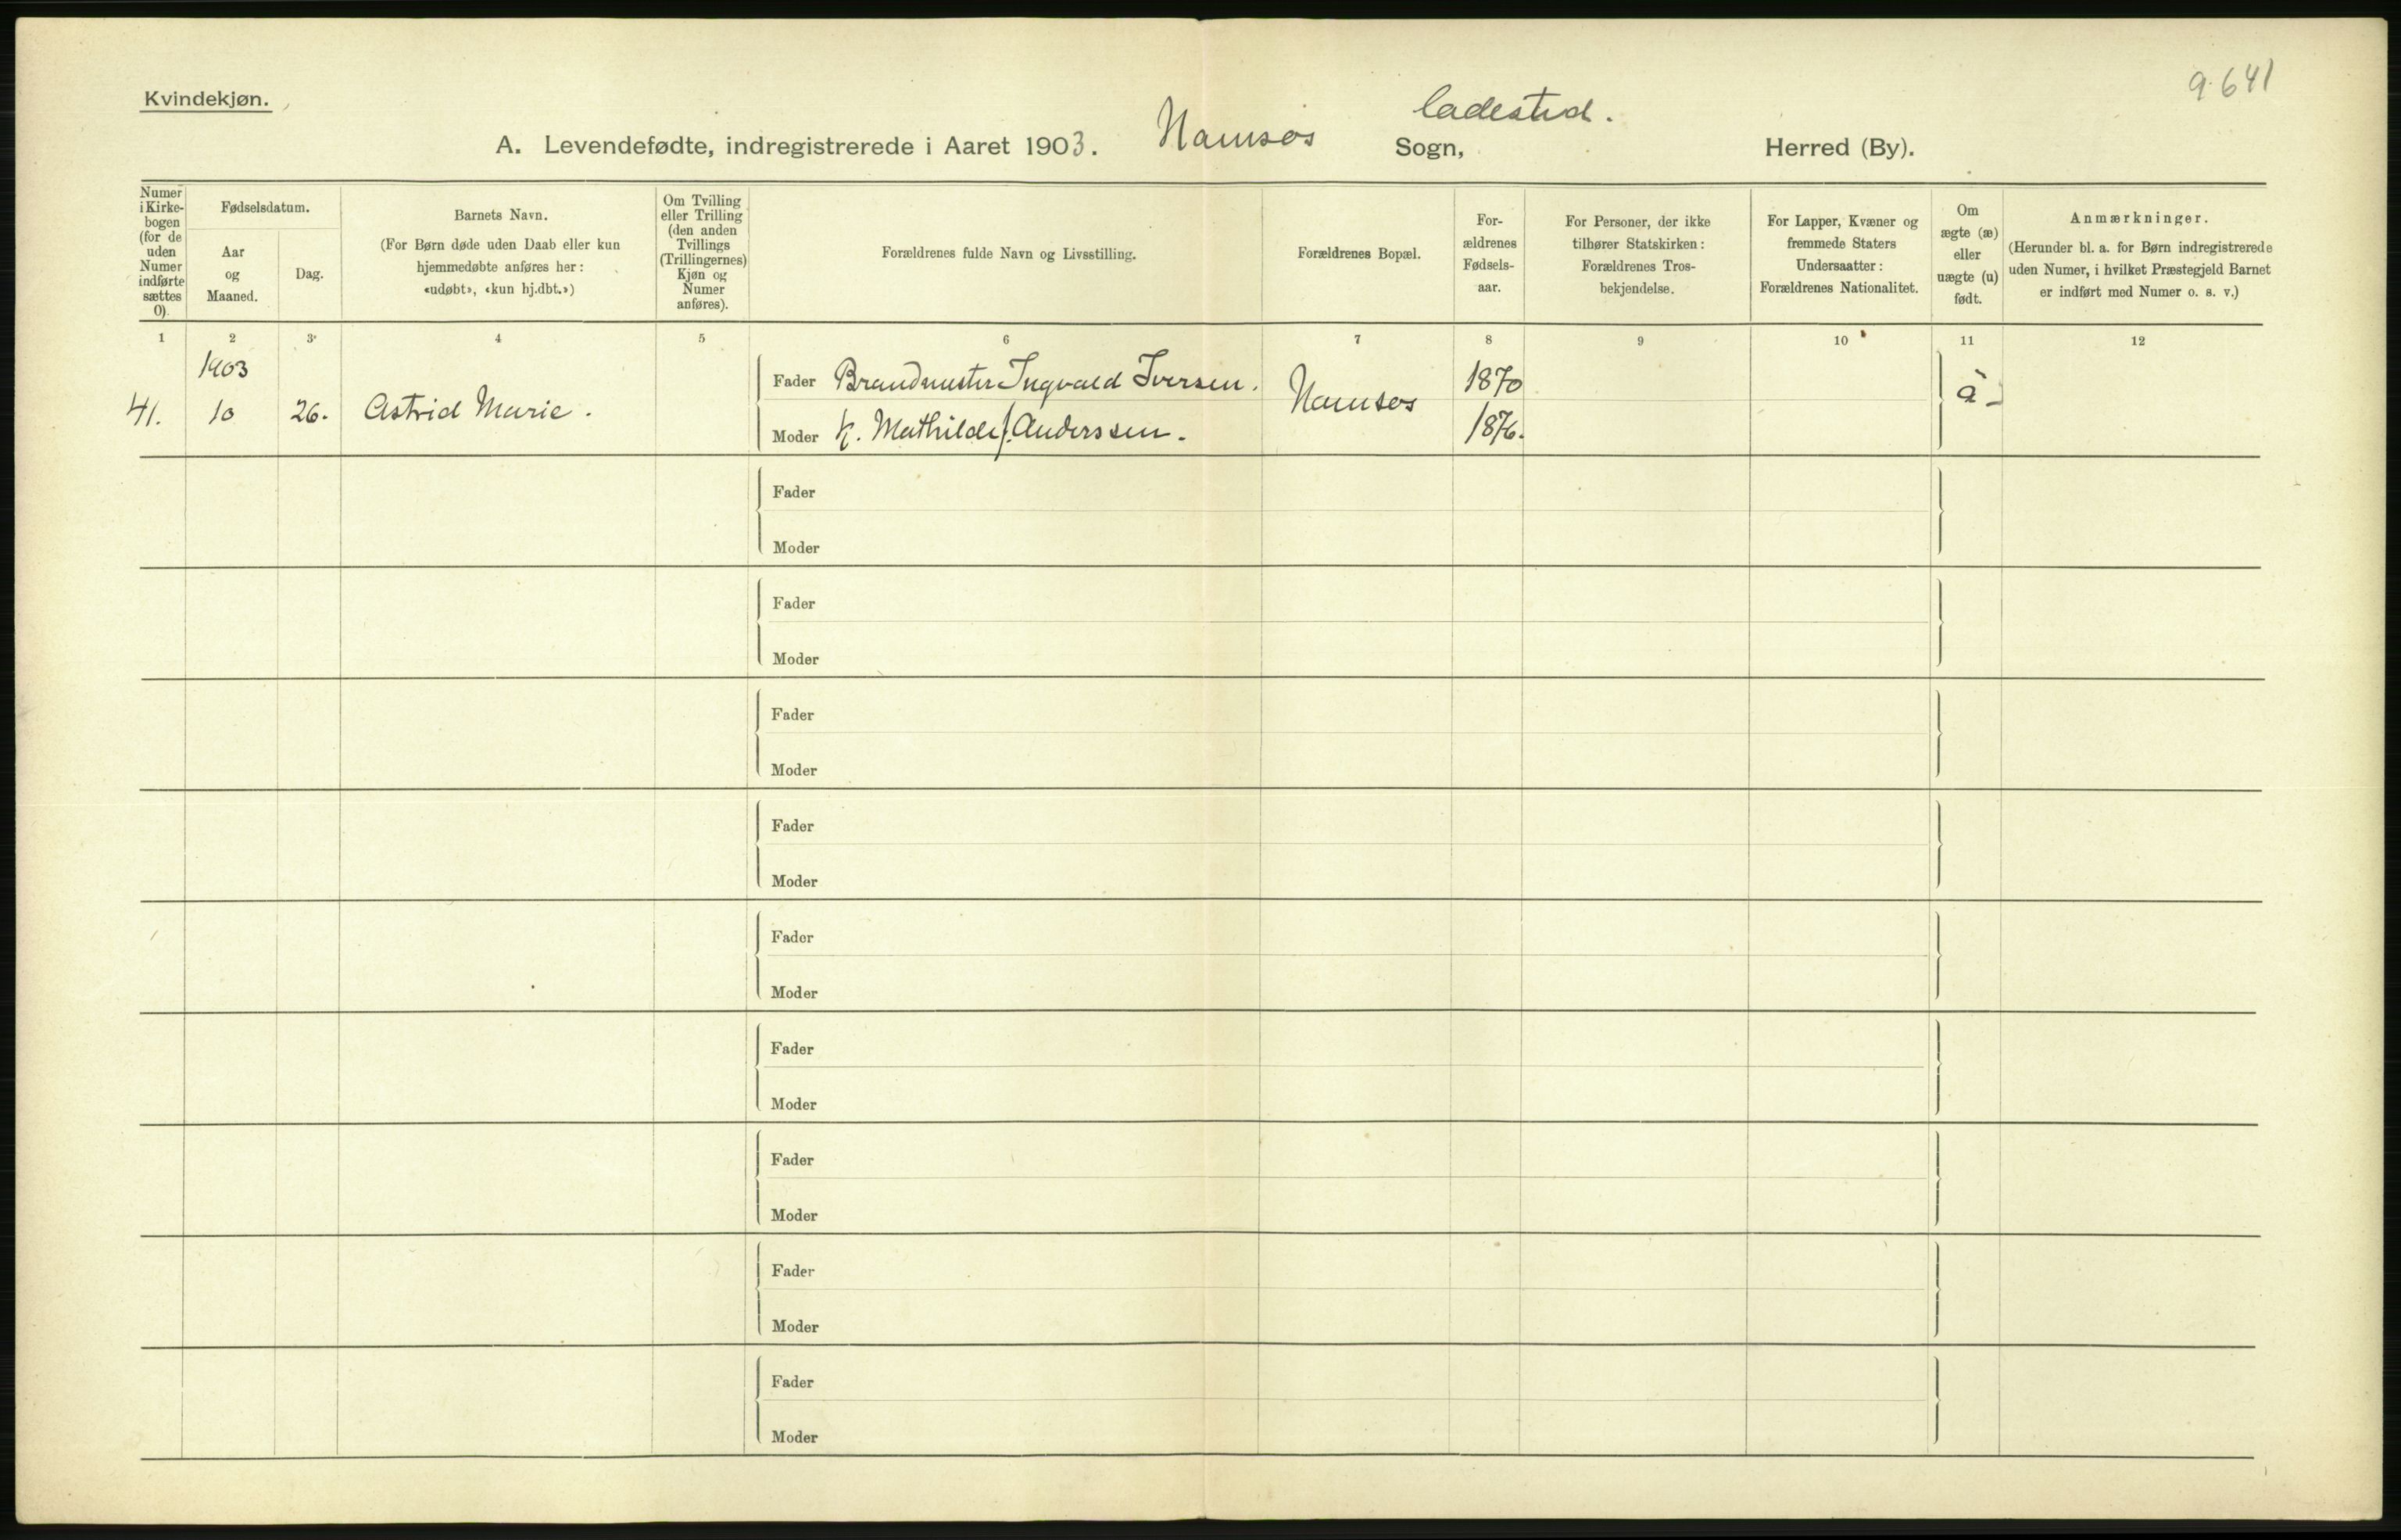 9.641
Kvindekjøn.
ladested.
A. Levendefødte, indregistrerede i Aaret 1903. Namsos Sogn, Herred (By).
Numer i Kirke-bogen (for de uden Numer indførte sættes 0).
Fødselsdatum.
Aar og Maaned.
Dag.
Barnets Navn.
(For Børn døde uden Daab eller kun
hjemmedøbte anføres her:
«udøbt», «kun hj.dbt.»)
Om Tvilling
eller Trilling
(den anden
Tvillings
(Trillingernes)
Kjøn og
Numer
anføres).
Forældrenes fulde Navn og Livsstilling.
Forældrenes Bopæl.
For-
ældrenes
Fødsels-
aar.
For Personer, der ikke
tilhører Statskirken:
Forældrenes Tros-
bekjendelse.
For Lapper, Kvæner og
fremmede Staters
Undersaatter:
Forældrenes Nationalitet.
Om
ægte (æ)
eller
uægte (u)
født.
Anmærkninger.
(Herunder bl. a. for Børn indregistrerede
uden Numer, i hvilket Præstegjeld Barnet
er indført med Numer o. s. v.)
1 2 3 4 5 6 7 8 9 10 11 12
1903
Fader Brandmester Ingvald Iversen. 1870
41. 10 26. Astrid Marie. Namsos
Moder h. Mathilde f. Anderssen. 1876.
Fader
Moder
Fader
Moder
Fader
Moder
Fader
Moder
Fader
Moder
Fader
Moder
Fader
Moder
Fader
Moder
Fader
Moder